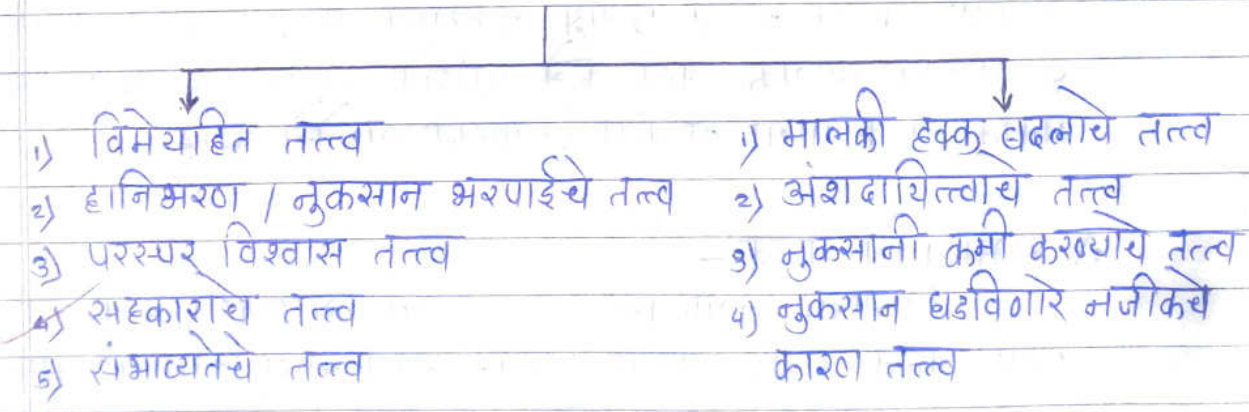 1) विमेयाहित तत्त्व
2) हानिभरण / नुकसान भरपाईचे तत्त्व
3) परस्पर विश्वास तत्त्व
4) सहकाराचे तत्त्व
5) संभाव्यतेचे तत्त्व
1) मालकी हक्क बदलाचे तत्त्व
2) अंशदायित्त्वाचे तत्त्व
3) नुकसानी कमी करण्याचे तत्त्व
4) नुकसान घडविणारे नजीकचे
कारण तत्त्व